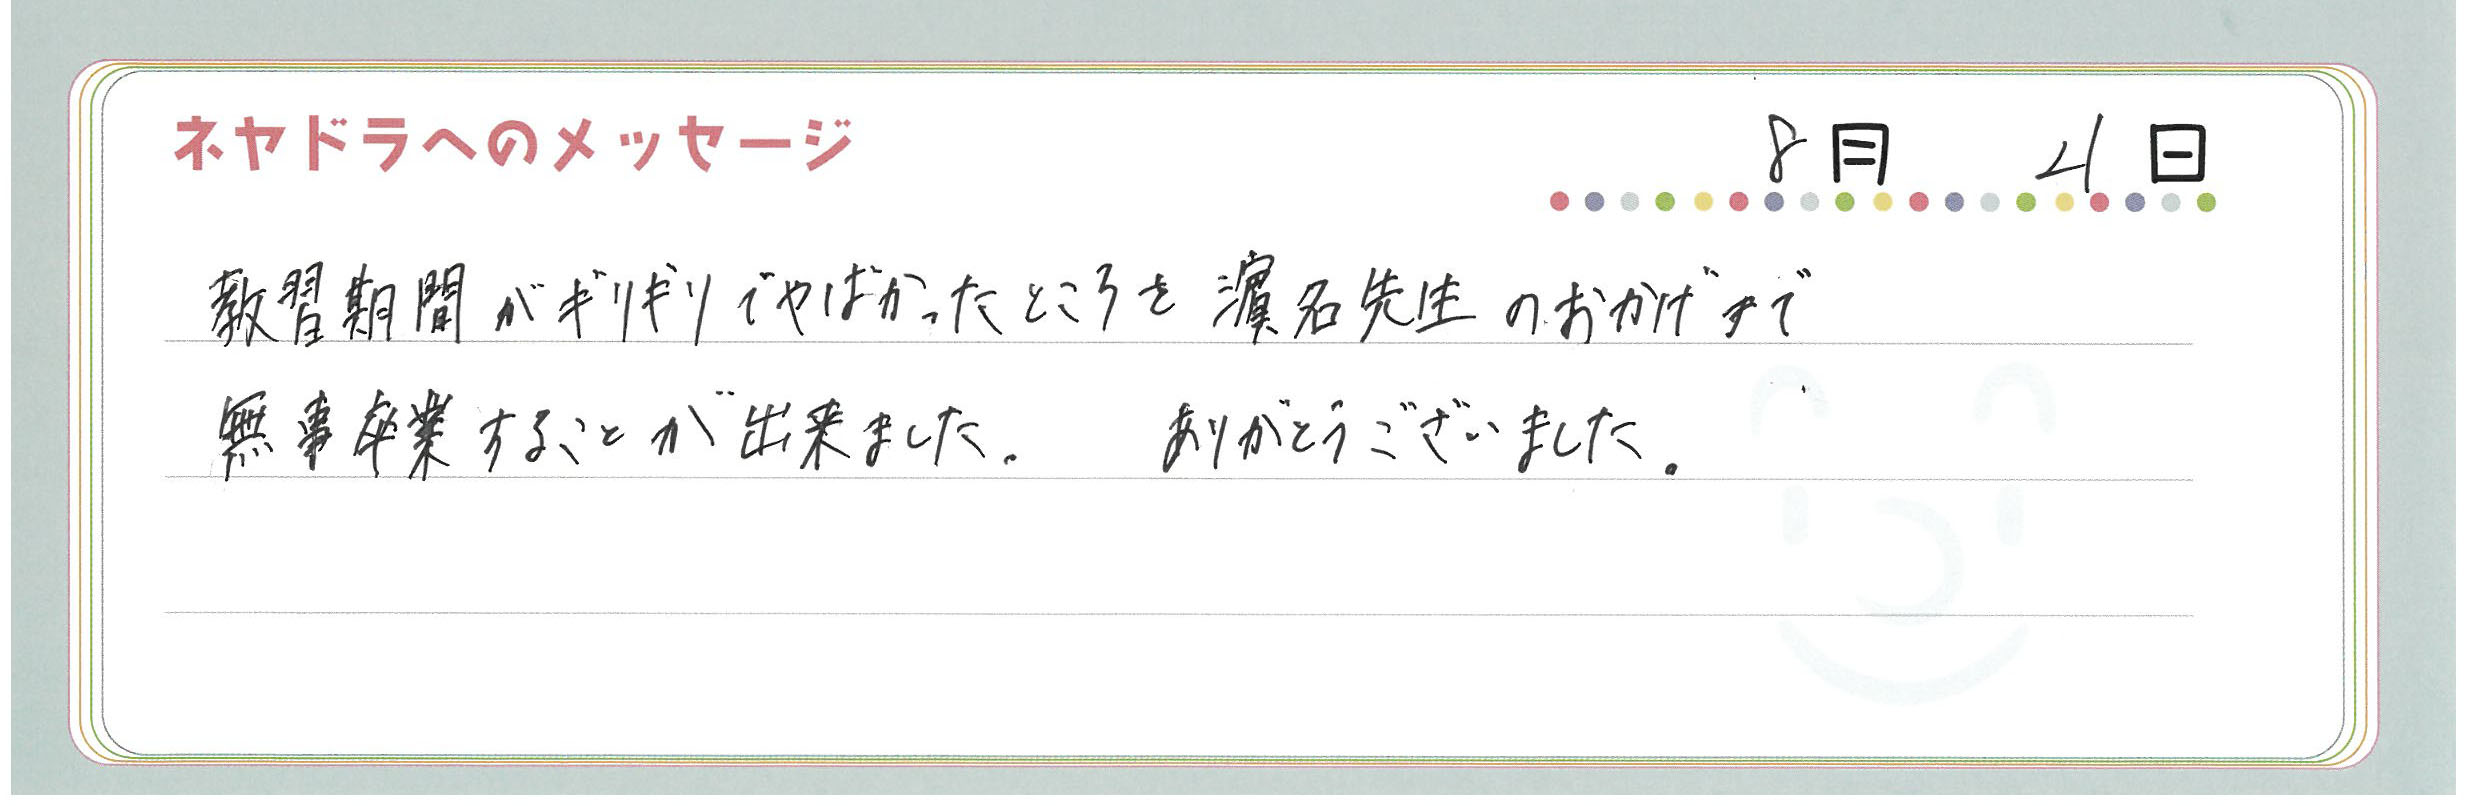 ネヤドラへのメッセージ
8月 4日
教習期間がギリギリでやばかったところを濵名先生のおかげすで
無事卒業することが出来ました。 ありがとうございました。